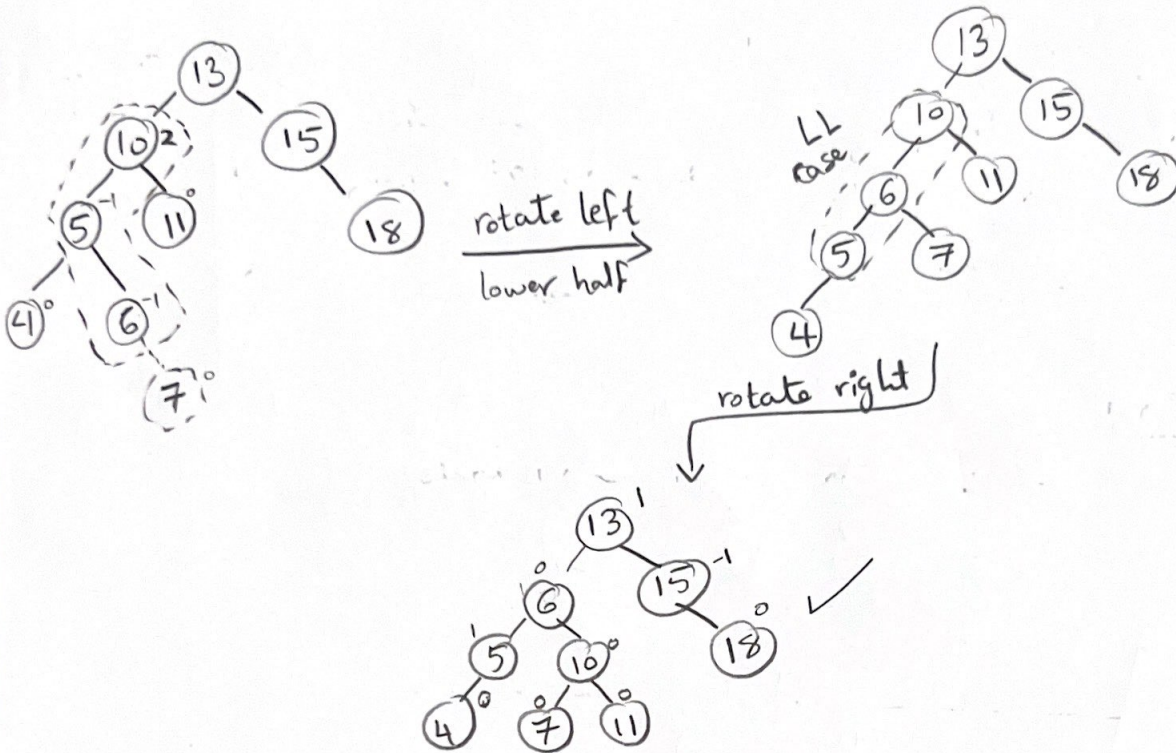 13
10 2
15
5 -1
11 0
18
4 0
6 -1
7 0
rotate left
lower half
13
LL
case
10
15
6
11
18
5
7
4
rotate right
13 1
0
6
15 -1
1
5
10 0
18 0
4 0
7 0
11 0